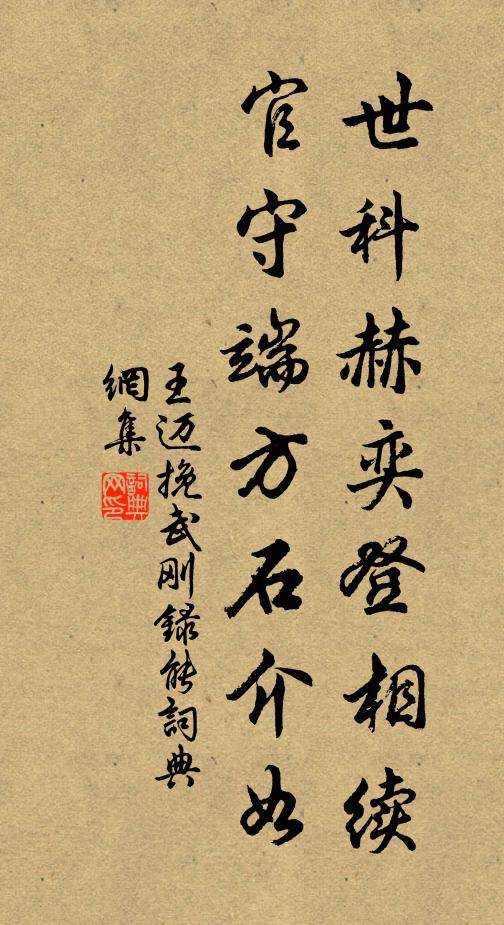 世科赫奕登相续
官守端方石介如
王迈挽武刚録能詞典
網集
詞典网印